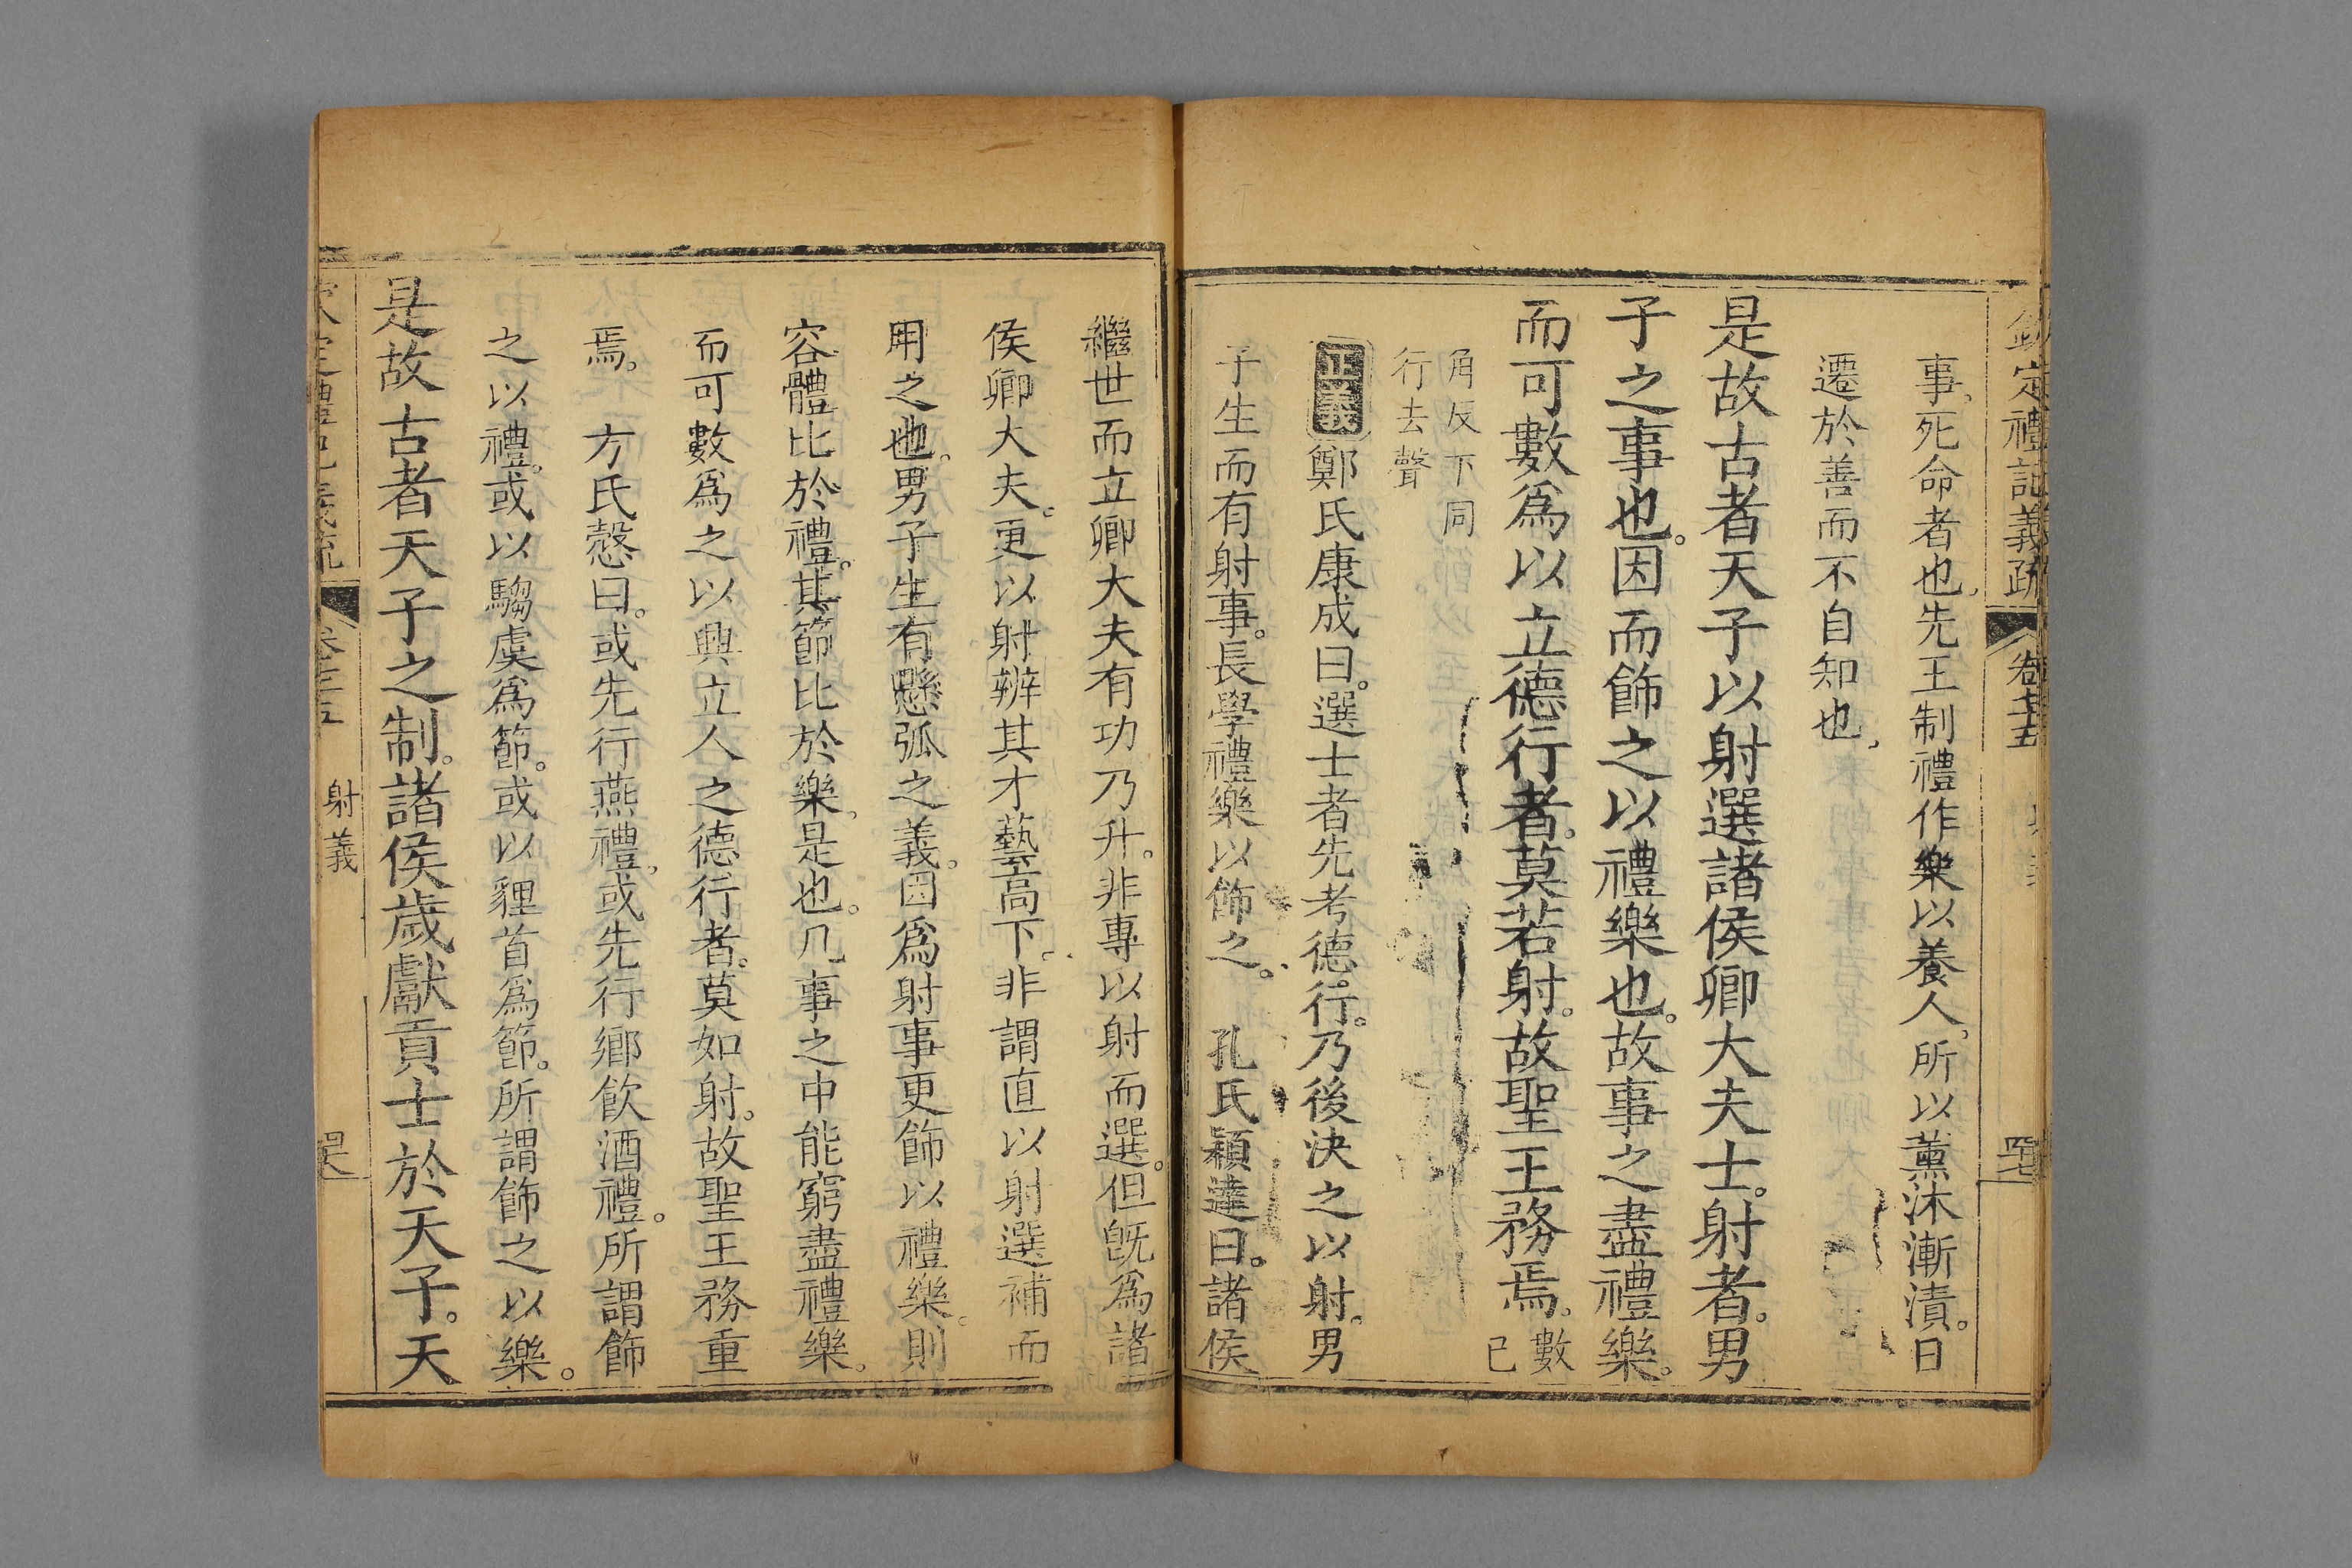 欽定禮記義疏 卷七十五 四十七
事死命者也先王制禮作樂以養人所以薰沐漸漬日
遷於善而不自知也
是故古者天子以射選諸侯卿大夫士射者男
子之事也因而飾之以禮樂也故事之盡禮樂
而可數爲以立德行者莫若射故聖王務焉 數
已
角反下同
行去聲
正義 鄭氏康成曰選士者先考德行乃後決之以射男
子生而有射事長學禮樂以飾之 孔氏穎達曰諸侯
繼世而立卿大夫有功乃升非專以射而選但旣爲諸
侯卿大夫更以射辨其才藝高下非謂直以射選補而
用之也男子生有懸弧之義因爲射事更飾以禮樂則
容體比於禮其節比於樂是也凡事之中能窮盡禮樂
而可數爲之以興立人之德行者莫如射故聖王務重
焉 方氏慤曰或先行燕禮或先行鄉飲酒禮所謂飾
之以禮或以騶虞爲節或以貍首爲節所謂飾之以樂
是故古者天子之制諸侯歲獻貢士於天子天
射義